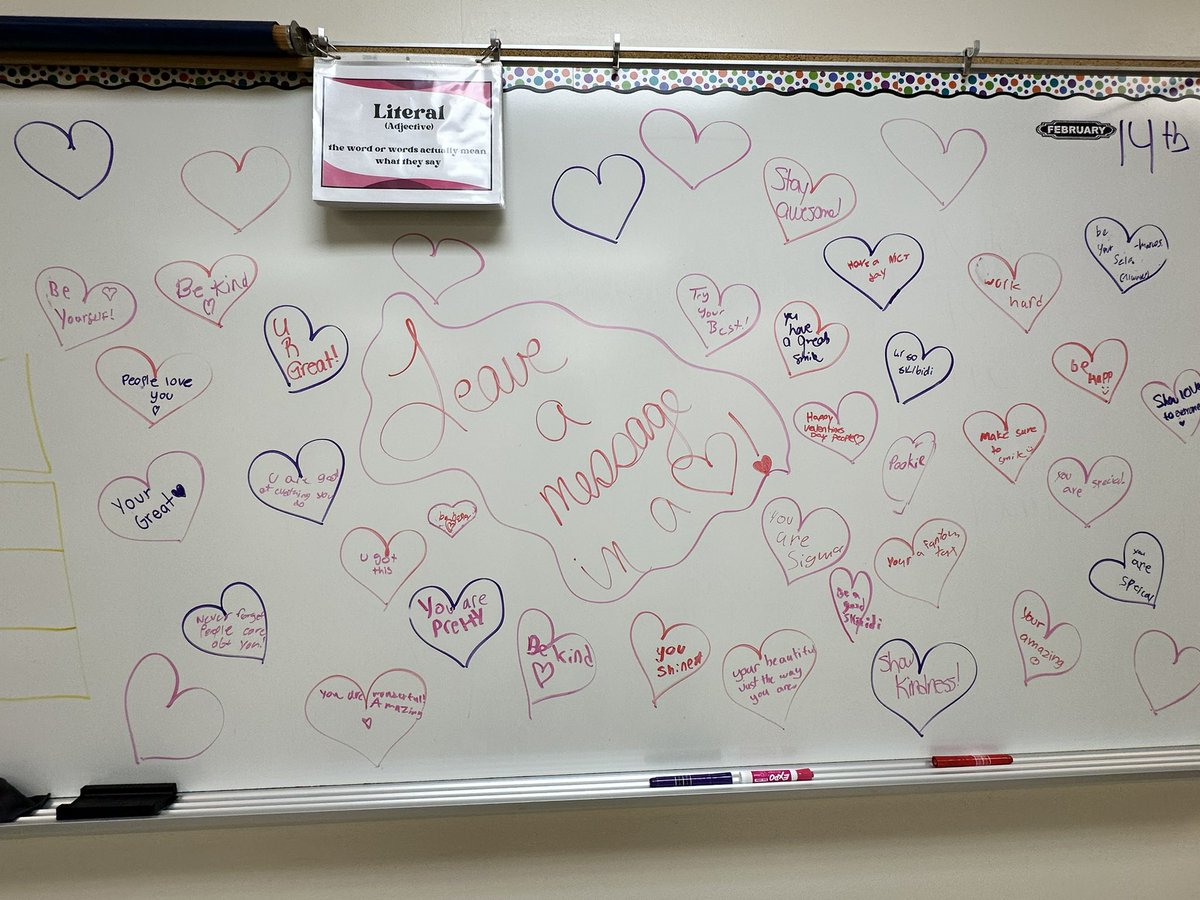 Literal
(Adjective)
the word or words actually mean
what they say
FEBRUARY 14th
Stay
awesome!
Have a MCT
day
work
hard
be
your
self
Be
Yourself!
Be kind
U
R
Great!
Try
your
Best!
you
have
a great
smile
ur so
skibidi
be
Happ
Show love
to everyone
People love
you
Leave
a
message
in a
Happy
valentines
Day people
Pookie
Make sure
to
smile
you
are special!
Your
Great
U are good
at
u got
this
You
are
Sigma
Your a
You
are
special
Never forget
People care
abt you!
You are
Pretty
Be kind
you
Shine
your beautiful
Just the way
you are
Be a
good
Skibidi
Show
kindness!
Your
amazing
You are wonderful!
Amazing
EXPO